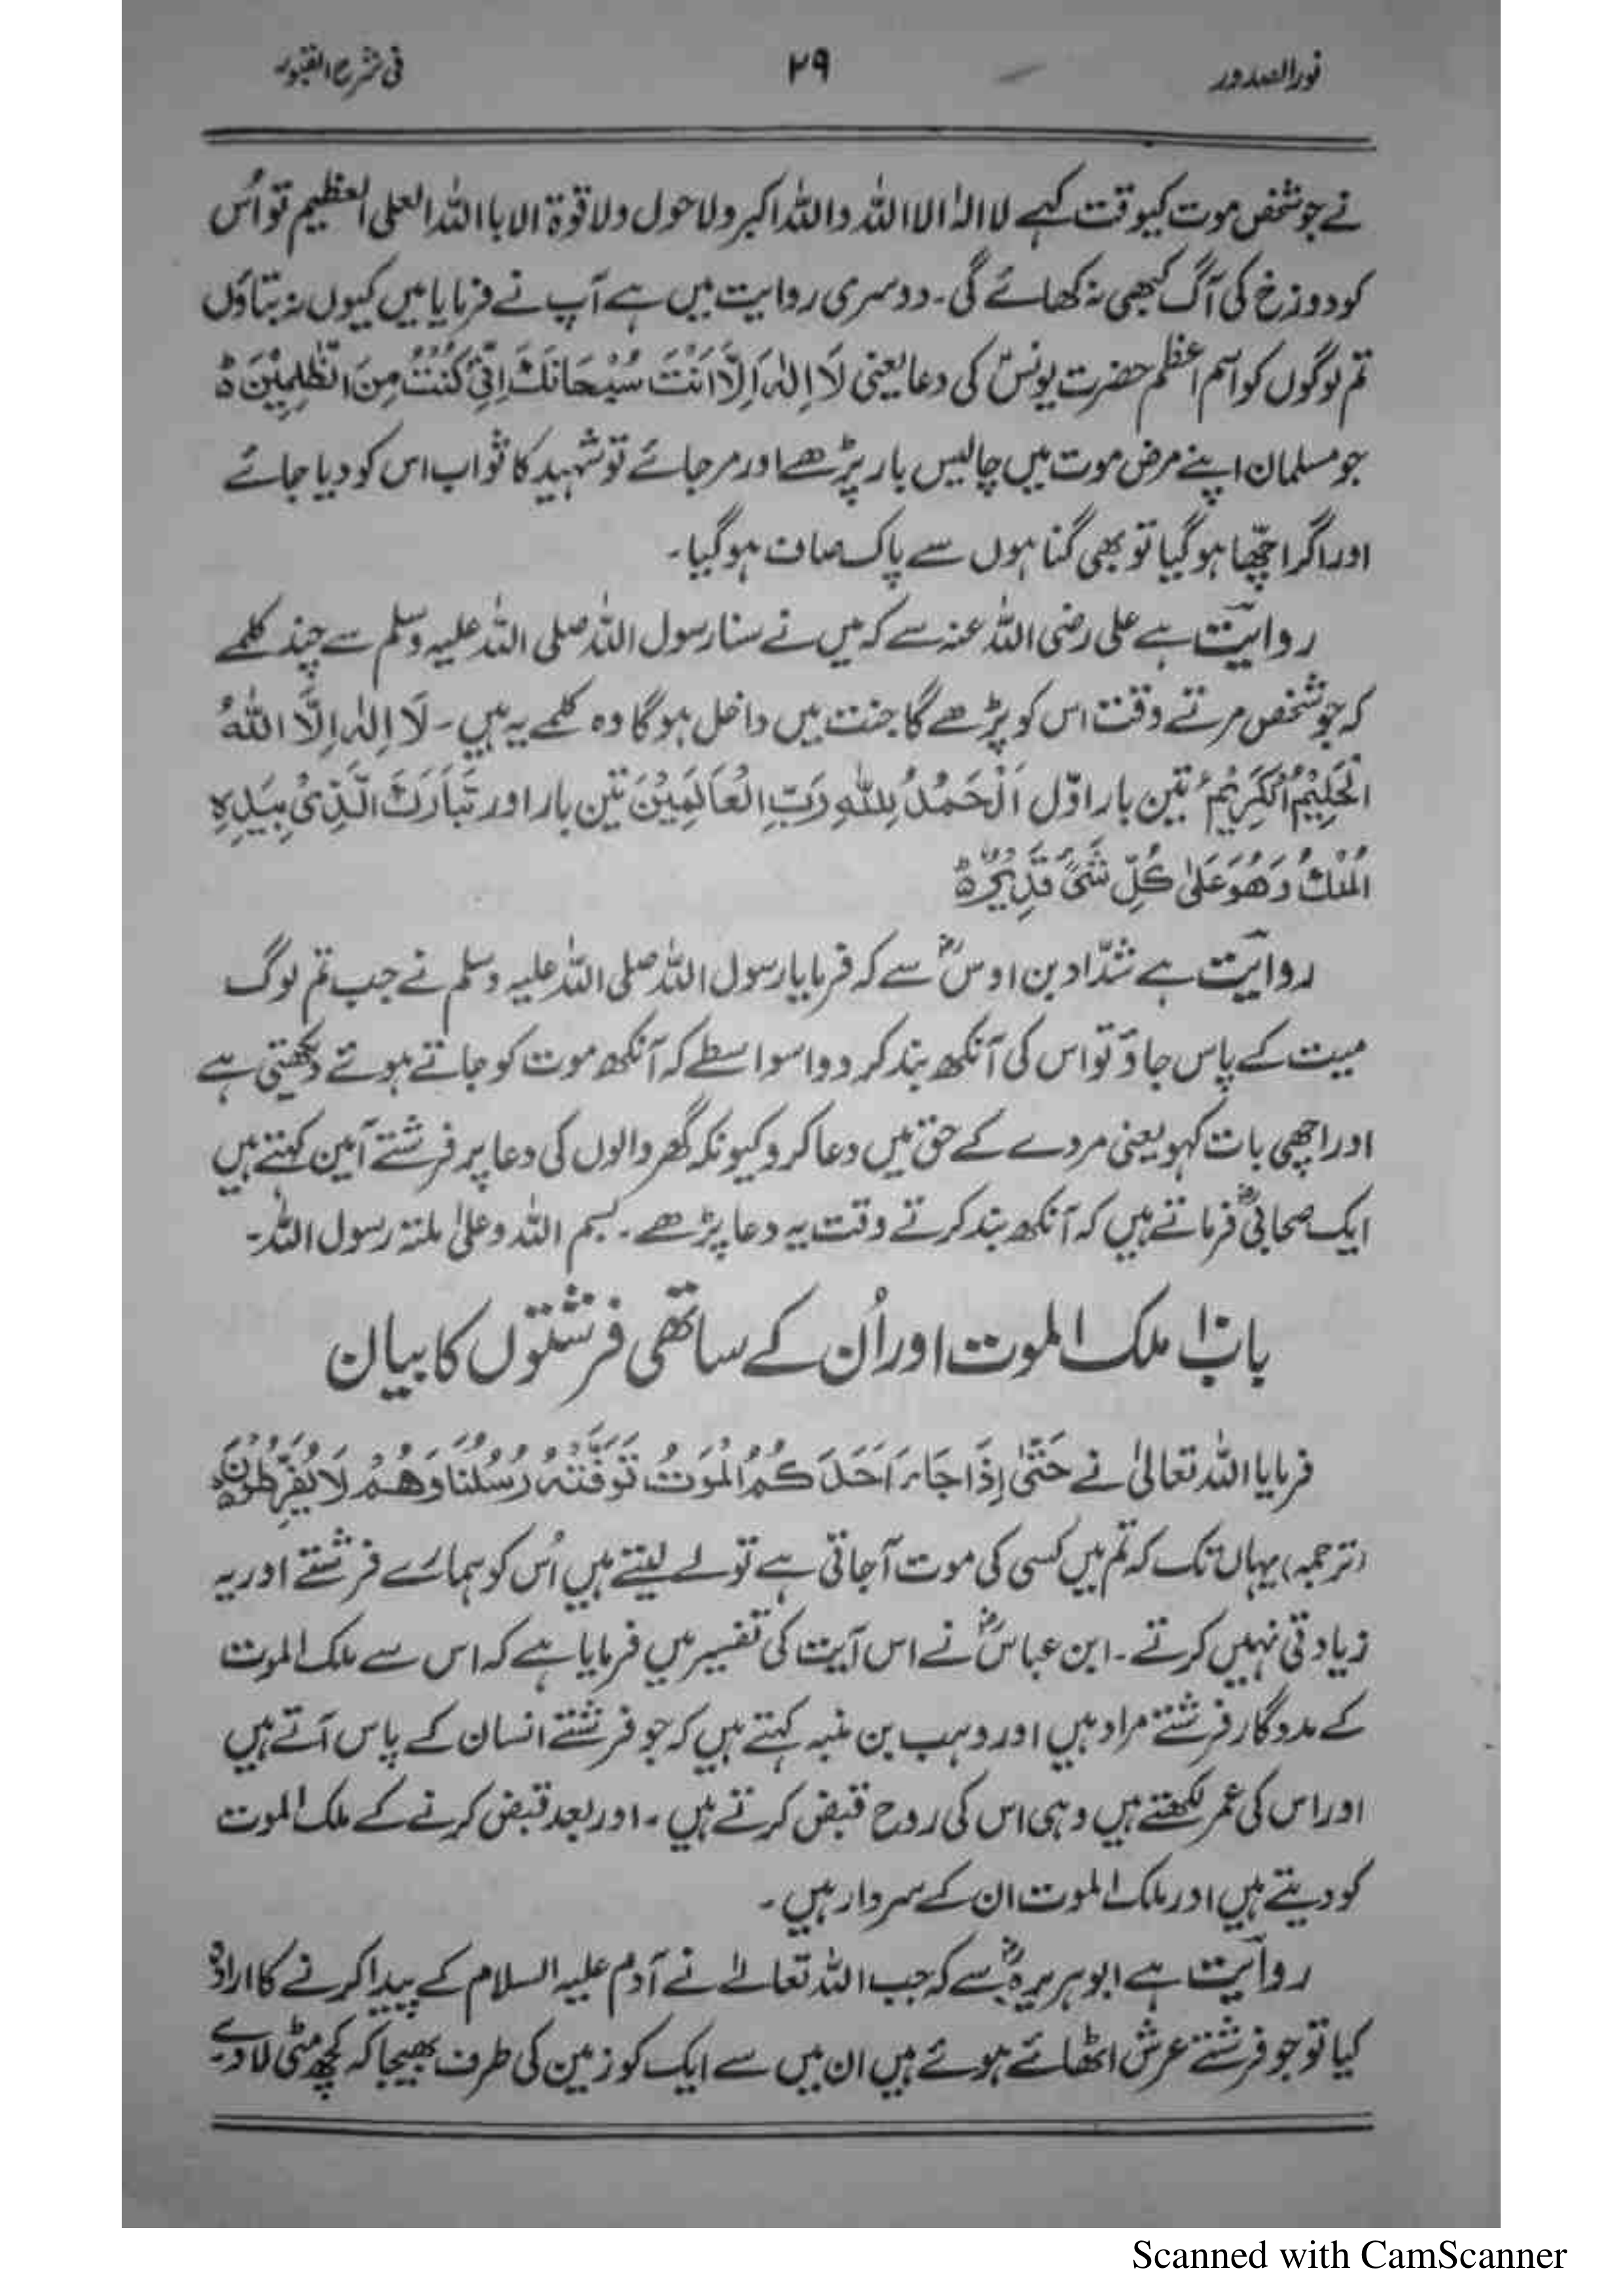 نورالصدور ۲۹ فی شرح القبور
نے جو شخص موت کیوقت کہے لا الہٰ الا اللہ واللہ اکبر ولا حول ولا قوۃ الا با اللہ العلی العظیم تو اُس
کو دوزخ کی آگ کبھی نہ کھائے گی۔ دوسری روایت میں ہے آپ نے فرمایا میں کیوں نہ بتاؤں
تم لوگوں کو اسم اعظم حضرت یونسؑ کی دعا یعنی لَا اِلٰہَ اِلَّا اَنْتَ سُبْحَانَكَ اِنِّیْ كُنْتُ مِنَ الظّٰلِمِیْنَ ہ
جو مسلمان اپنے مرض موت میں چالیس بار پڑھے اور مر جائے تو شہید کا ثواب اس کو دیا جائے
اور اگر اچّھا ہوگیا تو بھی گناہوں سے پاک صاف ہوگیا۔
روایت ہے علی رضی اللہ عنہ سے کہ میں نے سنا رسول اللہ صلی اللہ علیہ وسلم سے چند کلمے
کہ جو شخص مرتے وقت اس کو پڑھے گا جنت میں داخل ہوگا وہ کلمے یہ ہیں۔ لَا اِلٰہَ اِلَّا اللّٰهُ
الْحَلِیْمُ الْكَرِیْمُ تین بار اوّل اَلْحَمْدُ لِلّٰهِ رَبِّ الْعَالَمِیْنَ تین بار اور تَبَارَكَ الَّذِیْ بِیَدِهِ
الْمُلْكُ وَهُوَ عَلٰی كُلِّ شَیْءٍ قَدِیْرٌ ہ
روایت ہے شدّاد بن اوسؓ سے کہ فرمایا رسول اللہ صلی اللہ علیہ وسلم نے جب تم لوگ
میت کے پاس جاؤ تو اس کی آنکھ بند کر دو اسواسطے کہ آنکھ موت کو جاتے ہوئے دیکھتی ہے
اور اچھی بات کہو یعنی مردے کے حق میں دعا کرو کیونکہ گھر والوں کی دعا پر فرشتے آمین کہتے ہیں
ایک صحابیؓ فرماتے ہیں کہ آنکھ بند کرتے وقت یہ دعا پڑھے۔ بسم اللہ وعلیٰ ملتہ رسول اللہ۔
باب ملک الموت اور اُن کے ساتھی فرشتوں کا بیان
فرمایا اللہ تعالیٰ نے حَتّٰی اِذَا جَاءَ اَحَدَ كُمُ الْمَوْتُ تَوَفَّتْهُ رُسُلُنَا وَهُمْ لَا یُفَرِّطُوْنَ ہ
(ترجمہ) یہاں تک کہ تم میں کسی کی موت آجاتی ہے تو لے لیتے ہیں اُس کو ہمارے فرشتے اور یہ
زیادتی نہیں کرتے۔ ابن عباسؓ نے اس آیت کی تفسیر میں فرمایا ہے کہ اس سے ملک الموت
کے مددگار فرشتے مراد ہیں اور وہب بن منبہ کہتے ہیں کہ جو فرشتے انسان کے پاس آتے ہیں
اور اس کی عمر لکھتے ہیں وہی اس کی روح قبض کرتے ہیں۔ اور بعد قبض کرنے کے ملک الموت
کو دیتے ہیں اور ملک الموت ان کے سردار ہیں۔
روایت ہے ابوہریرہؓ سے کہ جب اللہ تعالےٰ نے آدم علیہ السلام کے پیدا کرنے کا ارادہ
کیا تو جو فرشتے عرش اٹھائے ہوئے ہیں ان میں سے ایک کو زمین کی طرف بھیجا کہ کچھ مٹی لادے
Scanned with CamScanner